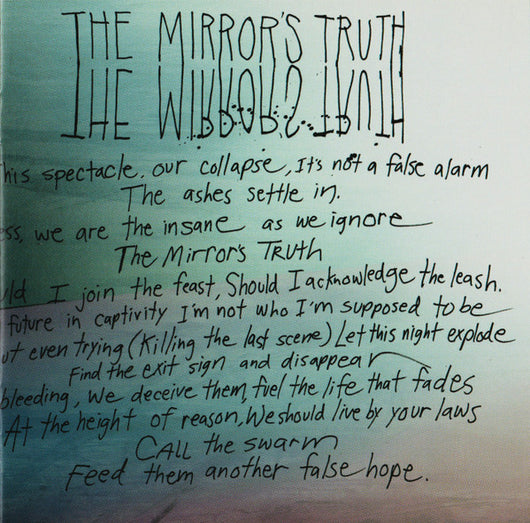 THE MIRROR'S TRUTH
THE MIRROR'S TRUTH
his spectacle. our collapse, It's not a false alarm
The ashes settle in.
ess, we are the insane as we ignore
The Mirror's Truth
uld I join the feast, Should I acknowledge the leash.
future in captivity I'm not who I'm supposed to be
ut even trying (Killing the last scene) Let this night explode
Find the exit sign and disappear
bleeding, We deceive them, fuel the life that fades
At the height of reason, We should live by your laws
CALL the swarm
Feed them another false hope.